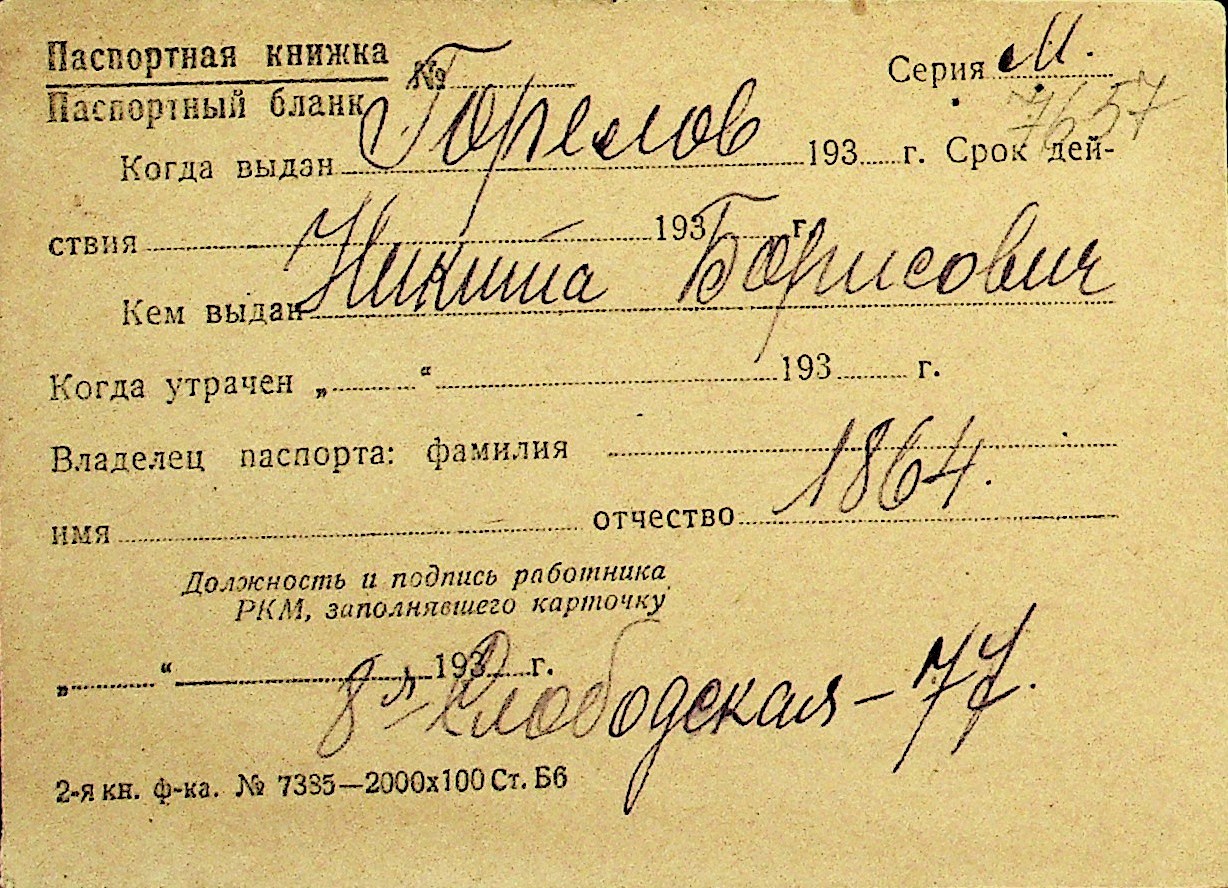 Паспортная книжка № Серия М.
Паспортный бланк 7657
Горелов
Когда выдан 193 г. Срок дей-
ствия 193 г.
Никита Борисович
Кем выдан
Когда утрачен „ “ 193 г.
Владелец паспорта: фамилия
1864.
имя отчество
Должность и подпись работника
РКМ, заполнявшего карточку
„ “ 193 г.
8я Слободская – 77.
2-я кн. ф-ка. № 7385—2000х100 Ст. Б6